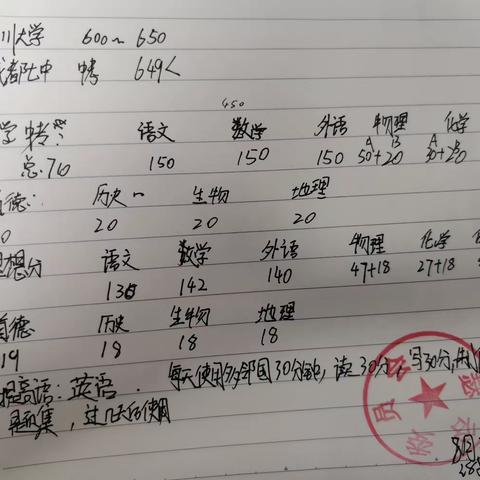 川大学 600~650
都七中 中考 649<
450
学考:
语文 数学 外语 物理 化学
A B A B
总:710 150 150 150 50+20 30+20
道德: 历史 生物 地理
0 20 20 20
理想分 语文 数学 外语 物理 化学
135 142 140 47+18 27+18
道德 历史 生物 地理
19 18 18 18
提高语: 英语. 每天使用多邻国30分钟, 读30分, 写30分,
题集, 过几天后使用
8月